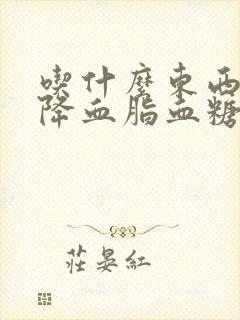 喫什麼東西
降血脂血糖
莊晏紅